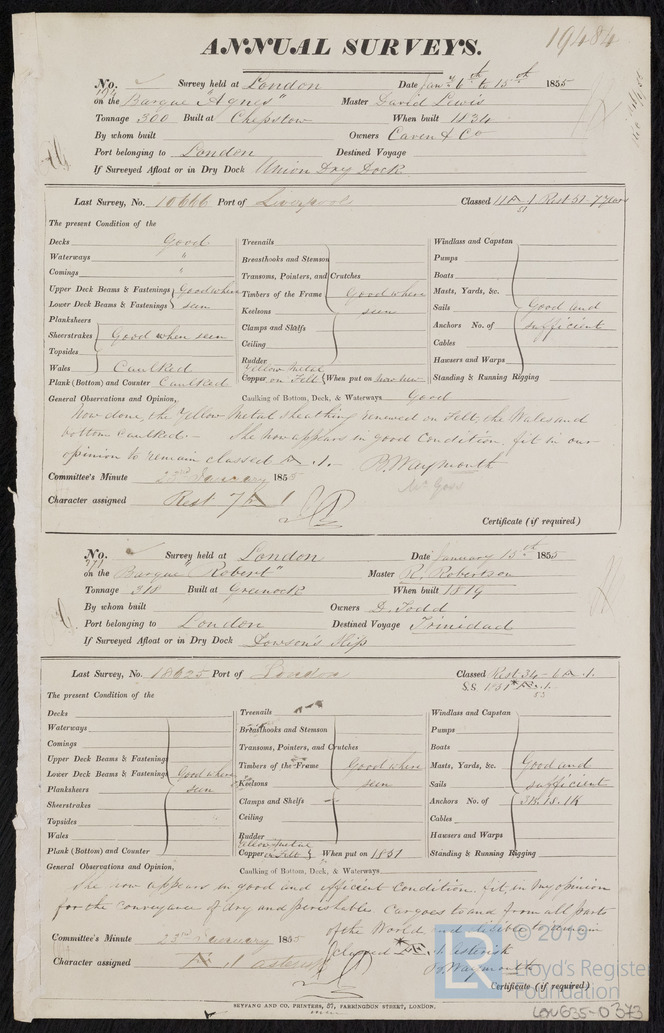 19484
ANNUAL SURVEYS.
No. 194 Survey held at London Date Jany 6th to 15th 1855
on the Barque "Agnes" Master David Lewis
Tonnage 300 Built at Chepstow When built 1834
By whom built Owners Caven & Co
Port belonging to London Destined Voyage
If Surveyed Afloat or in Dry Dock Union Dry Dock
Last Survey, No. 10666 Port of Liverpool Classed 1 Rest 51 7 years
51
The present Condition of the
Decks Good
Waterways "
Comings "
Upper Deck Beams & Fastenings Good where
Lower Deck Beams & Fastenings seen
Planksheers
Sheerstrakes Good when seen
Topsides
Wales Caulked
Plank (Bottom) and Counter Caulked
Treenails
Breasthooks and Stemson
Transoms, Pointers, and Crutches
Timbers of the Frame Good where
Keelsons seen
Clamps and Shelfs
Ceiling
Rudder
Yellow Metal
Copper on Felt When put on now new
Windlass and Capstan
Pumps
Boats
Masts, Yards, &c.
Sails Good and
Anchors No. of sufficient
Cables
Hawsers and Warps
Standing & Running Rigging
General Observations and Opinion, Caulking of Bottom, Deck, & Waterways Good
Now done, the Yellow Metal sheathing renewed on Felt, the Wales and
bottom Caulked. — She now appears in good Condition, fit in our
opinion to remain classed Æ .1. — B. Waymouth
Committee's Minute 23rd January 1855
Character assigned Rest 7 Æ 1
Certificate (if required)
No. 771 Survey held at London Date January 15th 1855
on the Barque "Robert" Master R. Robertson
Tonnage 318 Built at Greenock When built 1819
By whom built Owners D. Todd
Port belonging to London Destined Voyage Trinidad
If Surveyed Afloat or in Dry Dock Lowson's Slip
Last Survey, No. 18625 Port of London Classed Rest 34 - 6 Æ .1.
S.S. 1851 * Æ .1.
53
The present Condition of the
Decks
Waterways
Comings
Upper Deck Beams & Fastenings
Lower Deck Beams & Fastenings Good where
Planksheers seen
Sheerstrakes
Topsides
Wales
Plank (Bottom) and Counter
Treenails
Breasthooks and Stemson
Transoms, Pointers, and Crutches
Timbers of the Frame Good where
Keelsons seen
Clamps and Shelfs
Ceiling
Rudder
Yellow Metal
Copper on Felt When put on 1851
Windlass and Capstan
Pumps
Boats
Masts, Yards, &c. Good and
Sails sufficient
Anchors No. of 3B. 1S. 1K
Cables
Hawsers and Warps
Standing & Running Rigging
General Observations and Opinion, Caulking of Bottom, Deck, & Waterways
She now appears in good and efficient Condition, fit, in my opinion
for the conveyance of dry and perishable Cargoes to and from all parts
of the World and eligible to remain
classed * Æ .1. asterisk
B. Waymouth
Committee's Minute 23rd January 1855
Character assigned Æ 1 asterisk
Certificate (if required)
SEYFANG AND CO. PRINTERS, 57, FARRINGDON STREET, LONDON.
LR © 2019
Lloyd's Register
Foundation
LON635-0373